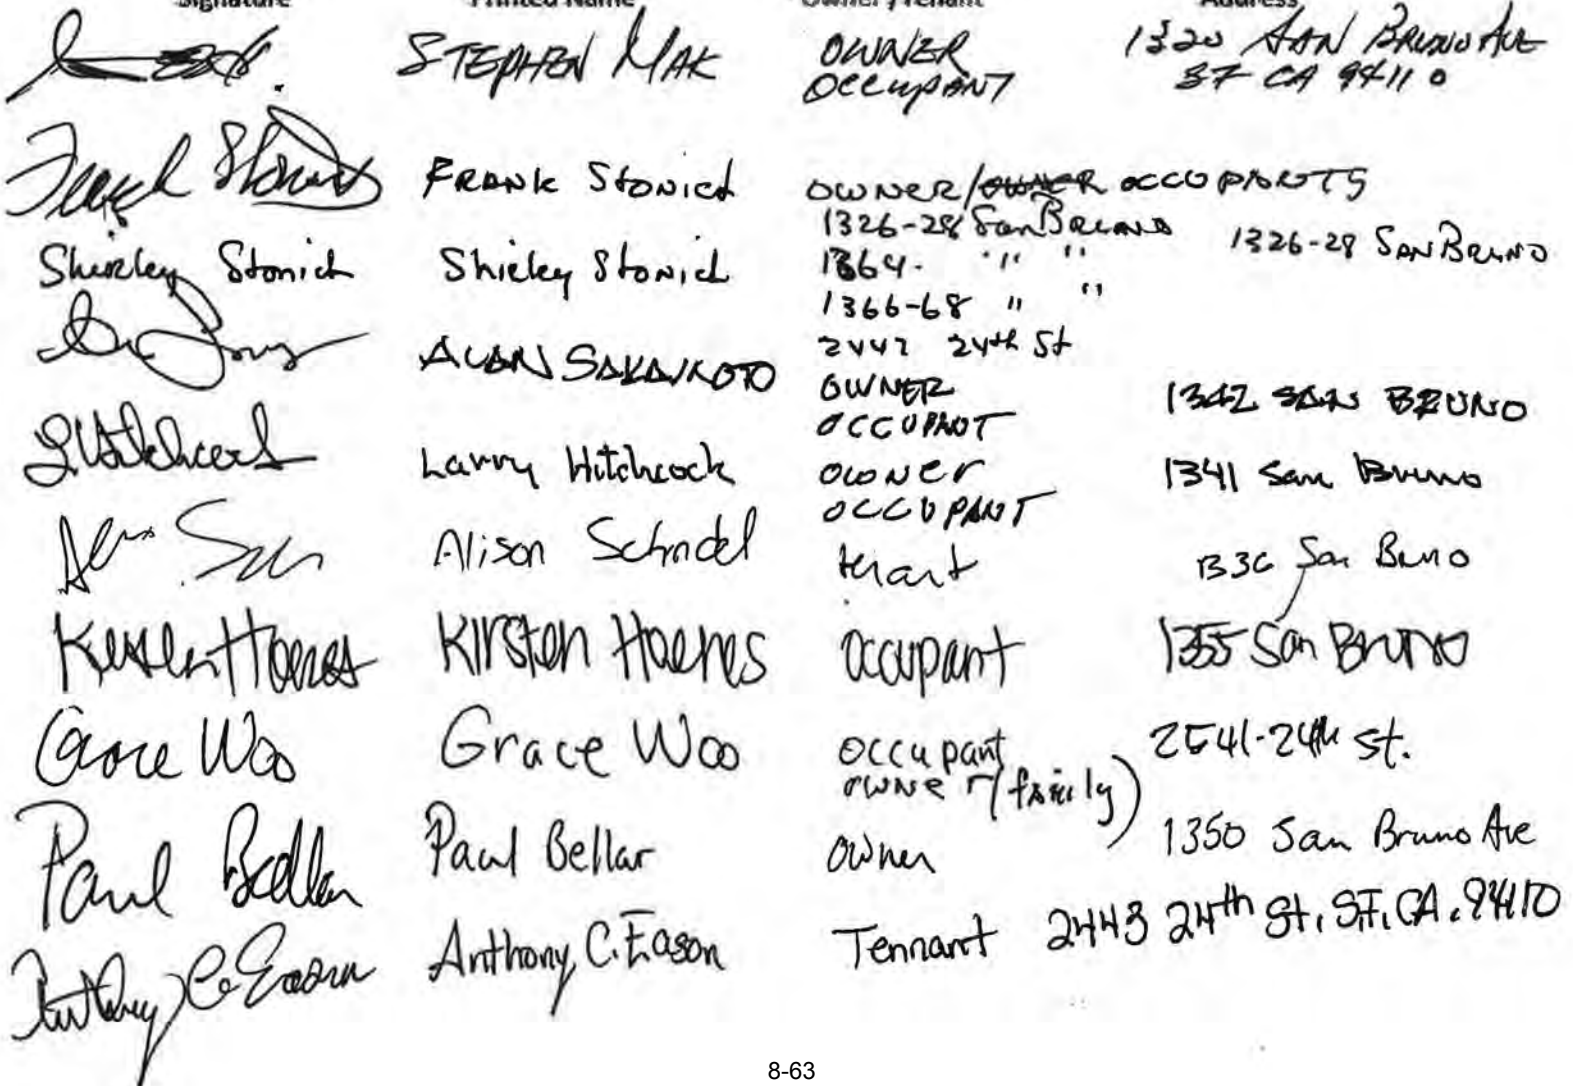 Signature Printed Name Owner/Tenant Address
STEPHEN MAK OWNER OCCUPANT 1320 SAN BRUNO AVE SF CA 94110
Frank Stonich FRANK StONICH OWNER/OWNER OCCUPANTS
1326-28 San Bruno 1326-28 SAN BRUNO
Shirley Stonich Shirley Stonich 1364- " "
1366-68 " "
2442 24th St
ALAN SAKAMOTO OWNER OCCUPANT 1342 SAN BRUNO
L Hitchcock Larry Hitchcock OWNER OCCUPANT 1341 San Bruno
Alison Schindel tenant 1336 San Bruno
Kirsten Hoenes Kirsten Hoenes occupant 1355 San Bruno
Grace Woo Grace Woo occupant owner (family) 2541-24th St.
Paul Bellar Paul Bellar owner 1350 San Bruno Ave
Anthony C. Eason Anthony C. Eason Tennant 2443 24th St. SF. CA. 94110
8-63